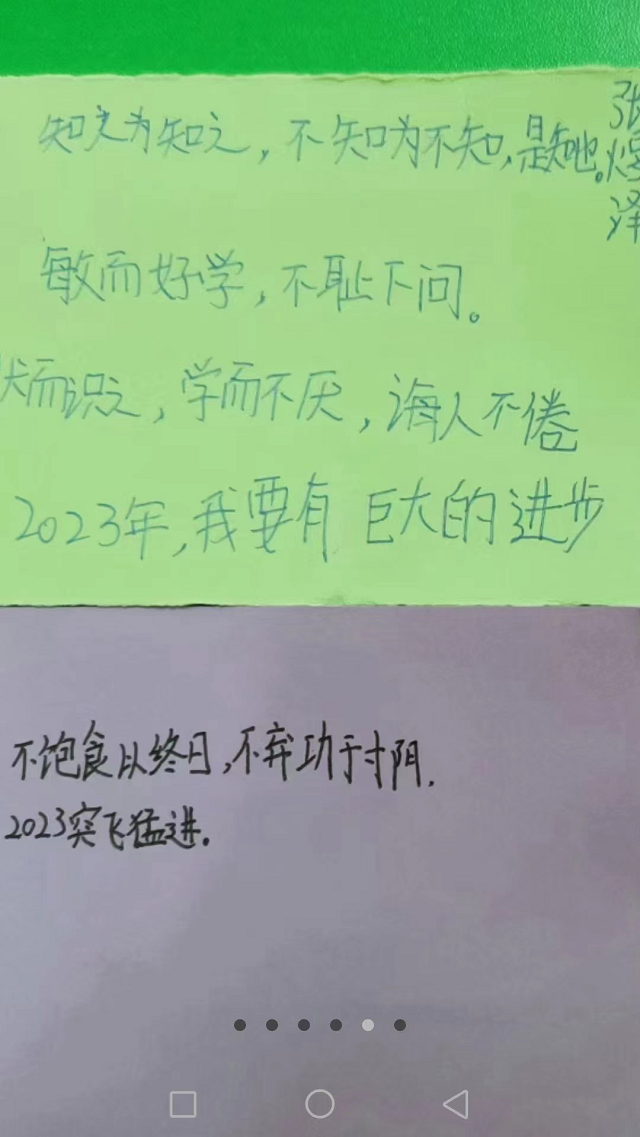 知之为知之，不知为不知，是知也。
张熠泽
敏而好学，不耻下问。
而识之，学而不厌，诲人不倦
2023年，我要有巨大的进步
不饱食以终日，不弃功于寸阴.
2023突飞猛进.